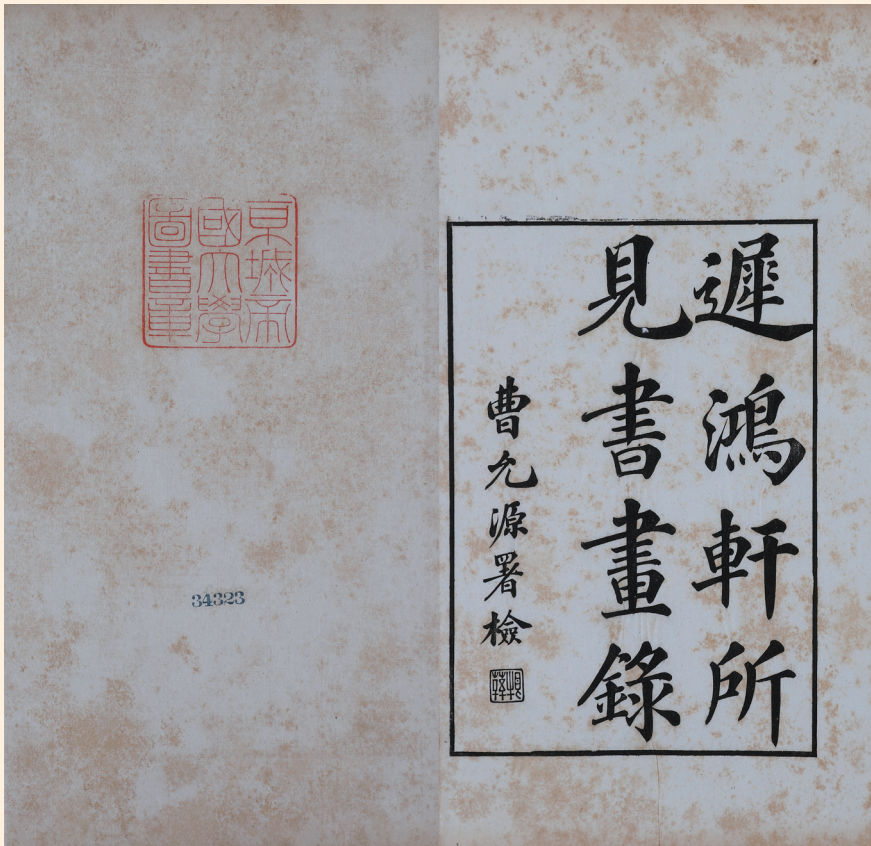 遲鴻軒所
見書畫錄
曹允源署檢
京城帝
國大學
圖書章
34323